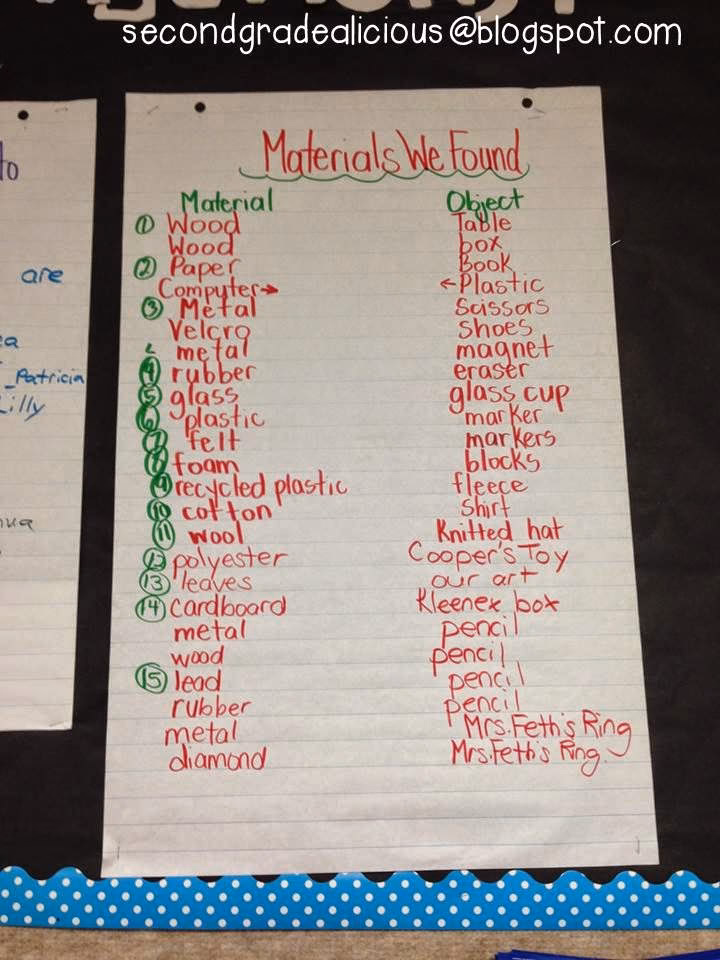 secondgradealicious@blogspot.com
to
are
Patricia
Lilly
Materials We Found
Material Object
① Wood Table
Wood box
② Paper Book
Computer→ ←Plastic
③ Metal Scissors
Velcro Shoes
metal magnet
④ rubber eraser
⑤ glass glass cup
⑥ plastic marker
⑦ felt markers
⑧ foam blocks
⑨ recycled plastic fleece
⑩ cotton Shirt
⑪ wool Knitted hat
⑫ polyester Cooper's Toy
⑬ leaves our art
⑭ cardboard Kleenex box
metal pencil
wood pencil
⑮ lead pencil
rubber pencil
metal Mrs. Feth's Ring
diamond Mrs. Feth's Ring.